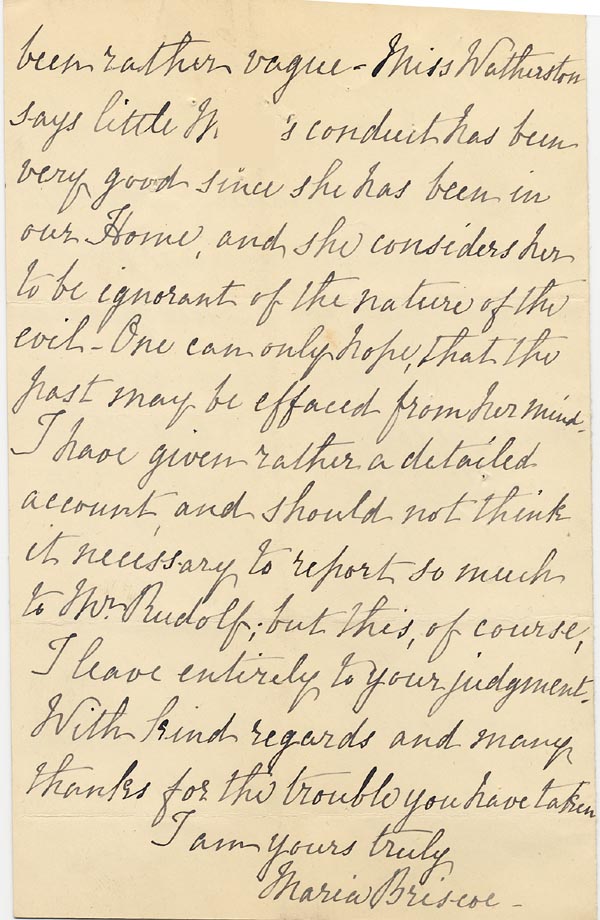 been rather vague - Miss Watherston
says little M 's conduct has been
very good since she has been in
our Home, and she considers her
to be ignorant of the nature of the
evil - One can only hope, that the
past may be effaced from her mind.
I have given rather a detailed
account, and should not think
it necessary to report so much
to Mr. Rudolf; but this, of course,
I leave entirely to your judgment.
With kind regards and many
thanks for the trouble you have taken
I am yours truly
Maria Briscoe -